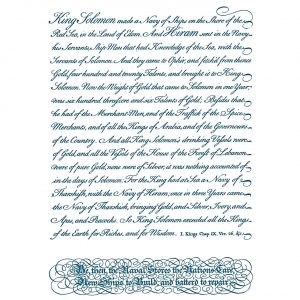 King Solomon made a Navy of Ships on the Shore of the
Red Sea, in the Land of Edom. And Hiram sent in the Navy
his Servants, Ship Men that had Knowledge of the Sea, with the
Servants of Solomon. And they came to Ophir, and fetch'd from thence
Gold, four hundred and twenty Talents, and brought it to King
Solomon. Now the Weight of Gold that came to Solomon in one Year,
was six hundred threescore and six Talents of Gold; Besides that
he had of the Merchant Men, and of the Traffick of the Spice
Merchants, and of all the Kings of Arabia, and of the Governours
of the Country. And all King Solomon's drinking Vessels were
of Gold, and all the Vessels of the House of the Forest of Lebanon,
were of pure Gold, none were of Silver; it was nothing accounted of
in the days of Solomon. For the King had at Sea a Navy of
Tharshish, with the Navy of Hiram; once in three Years came
the Navy of Tharshish, bringing Gold, and Silver, Ivory, and
Apes, and Peacocks. So King Solomon exceeded all the Kings
of the Earth for Riches, and for Wisdom. I. Kings Chap IX. Ver. 26, &c.
Be, then, the Naval Stores the Nations Care,
New Ships to Build, and batter'd to repair.